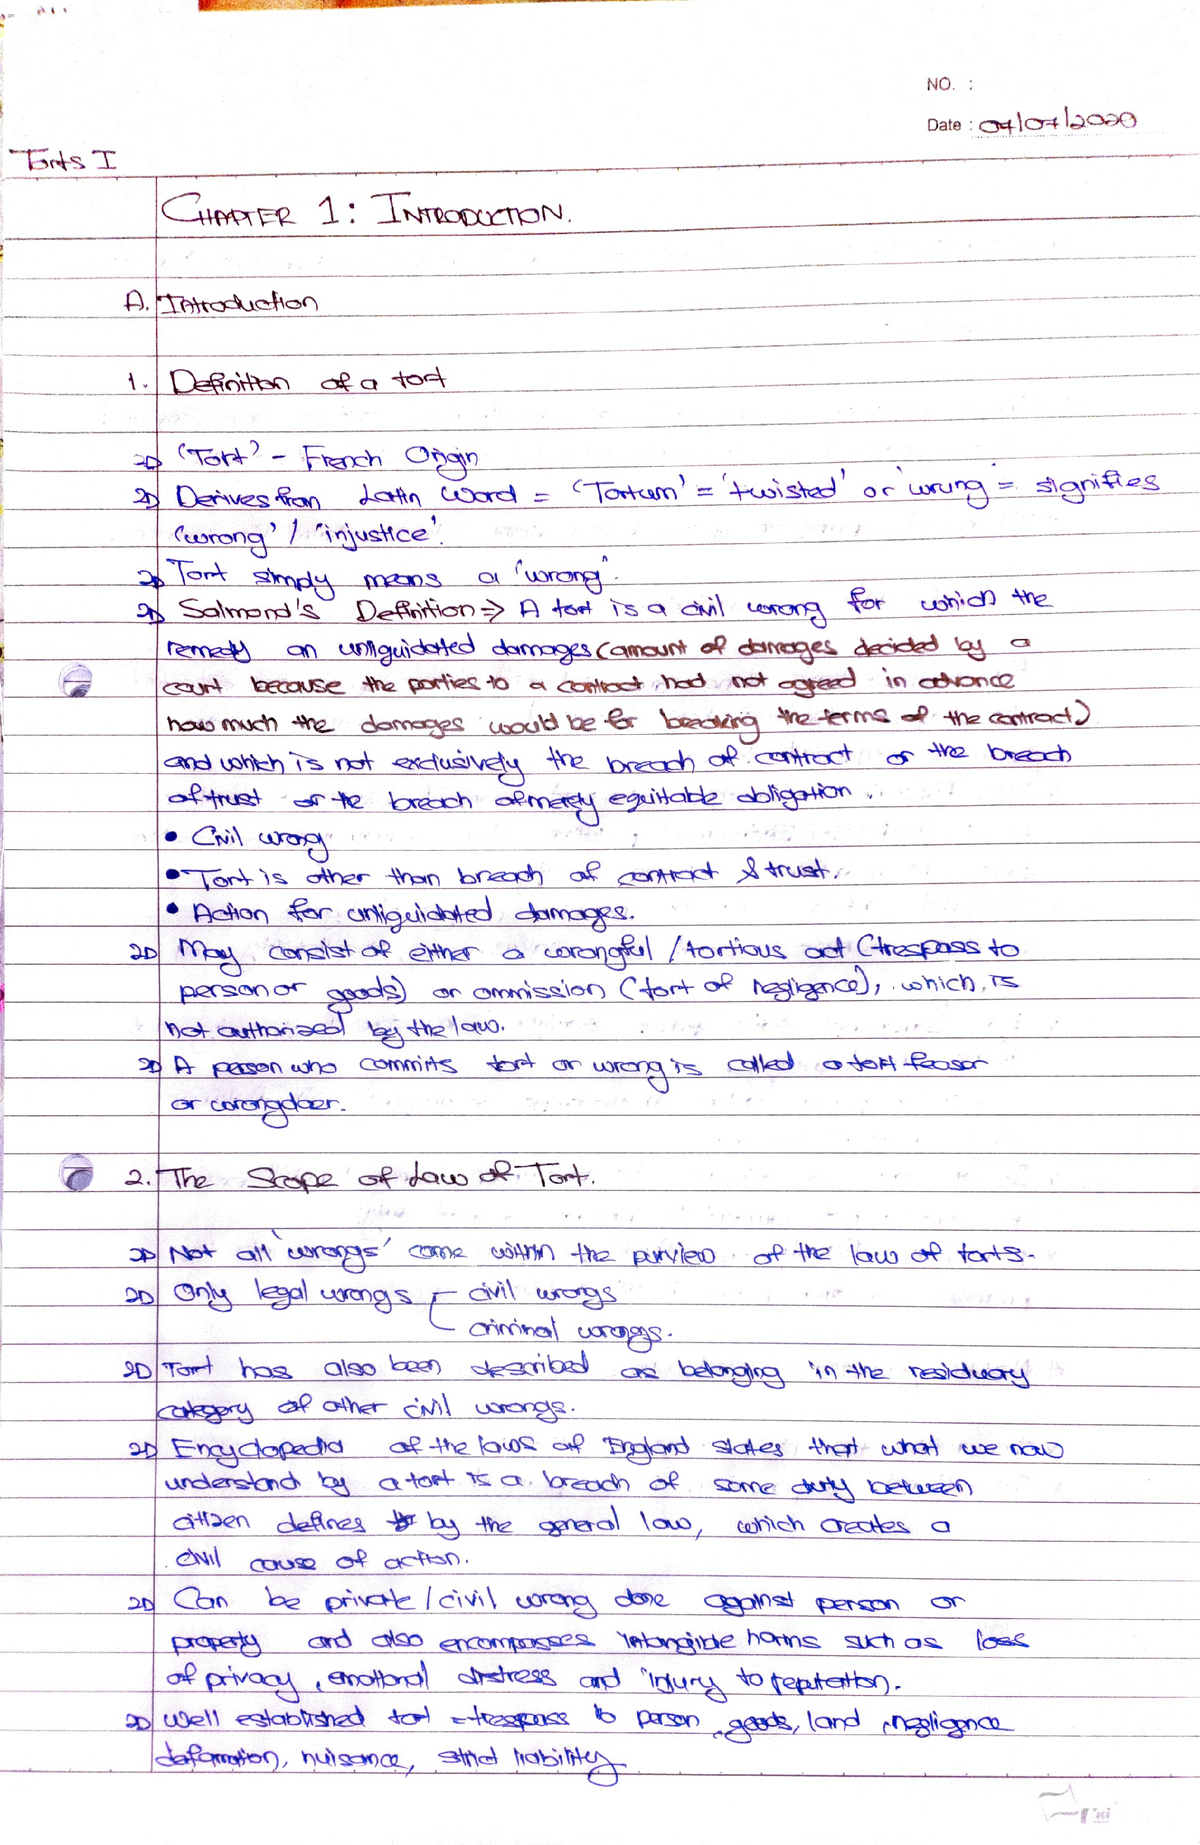 NO. :
Date : 07/07/2020
Torts I
CHAPTER 1: INTRODUCTION.
A. Introduction
1. Definition of a tort
⇒ 'Tort' - French Origin
⇒ Derives from Latin Word = 'Tortum' = 'twisted' or 'wrung' = signifies
'wrong' / 'injustice'.
⇒ Tort simply means a 'wrong'.
⇒ Salmond's Definition => A tort is a civil wrong for which the
remedy an unliquidated damages (amount of damages decided by a
court because the parties to a contract had not agreed in advance
how much the damages would be for breaking the terms of the contract)
and which is not exclusively the breach of contract or the breach
of trust or the breach of merely equittable obligation.
• Civil wrong
• Tort is other than breach of contract & trust.
• Action for unliquidated damages.
⇒ May consist of either a wrongful / tortious act (trespass to
person or goods) or ommission (tort of negligence), which is
not authorized by the law.
⇒ A person who commits tort or wrong is called a tort feasor
or wrongdoer.
2. The Scope of Law of Tort.
⇒ Not all 'wrongs' come within the purview of the law of torts.
⇒ Only legal wrongs civil wrongs
criminal wrongs.
⇒ Tort has also been described as belonging in the residuary
category of other civil wrongs.
⇒ Encyclopedia of the laws of England states that what we now
understand by a tort is a breach of some duty between
citizen defines by the general law, which creates a
civil cause of action.
⇒ Can be private / civil wrong done against person or
property and also encompasses intangible harms such as loss
of privacy, emotional distress and injury to reputation.
⇒ Well established tort = trespass to person, goods, land, negligence
defamation, nuisance, strict liability